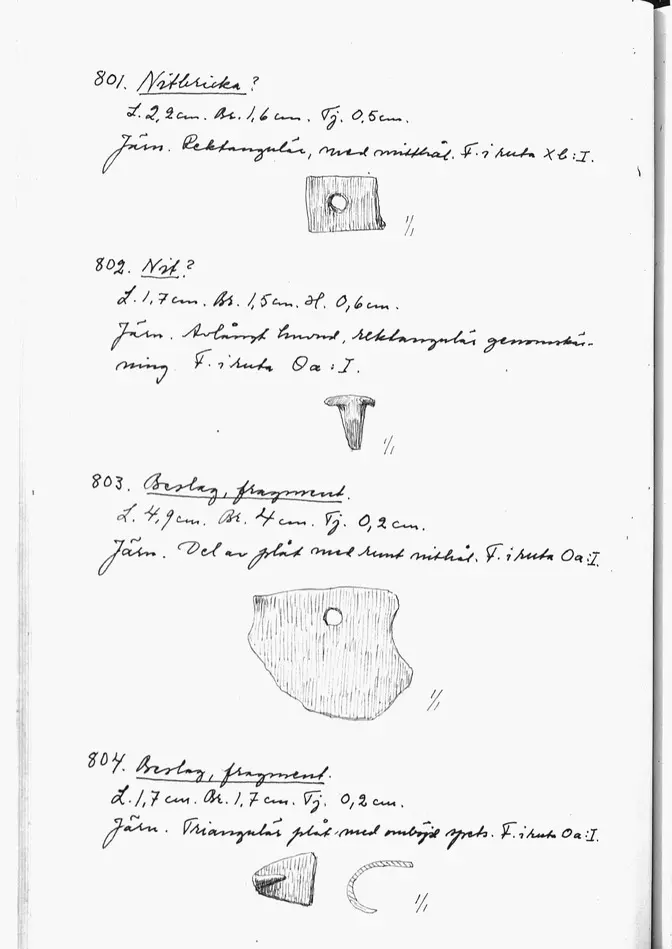 801. Nitbricka?
L. 2,2cm. Br. 1,6cm. Tj. 0,5cm.
Järn. Rektangulär, med mitthål. F. i ruta Xb:I.
1/1
802. Nit?
L. 1,7cm. Br. 1,5cm. H. 0,6cm.
Järn. Avlångt huvud, rektangulär genomskär-
ning. F. i ruta Oa:I.
1/1
803. Beslag, fragment.
L. 4,9cm. Br. 4cm. Tj. 0,2cm.
Järn. Del av plåt med runt nithål. F. i ruta Oa:I.
1/1
804. Beslag, fragment.
L. 1,7cm. Br. 1,7cm. Tj. 0,2cm.
Järn. Triangulär plåt med omböjd spets. F. i ruta Oa:I.
1/1